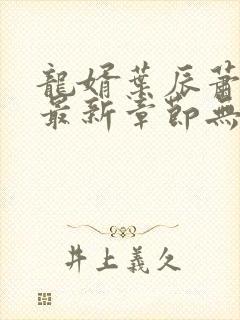 龍婿葉辰蕭
最新章節無
井上義久